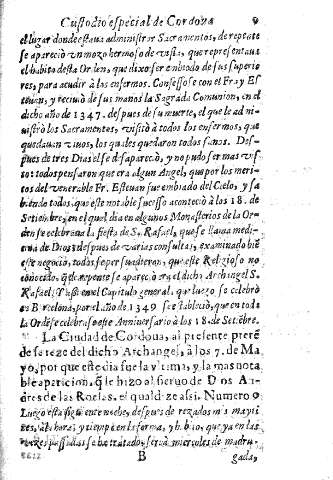 Custodio especial de Cordoua 9
el lugar donde estaua administrar Sacramentos, de repente
se apareciò vn mozo hermoso de vista, que representaua
el habito desta Orden, que dixo ser embiado de sus superio
res, para acudir à los enfermos. Confessose con el Fray Es
teuan, y reciuiò de sus manos la Sagrada Comunion, en el
dicho año de 1347. despues de su muerte, el que le ad mi
nistrò los Sacramentos, visitò a todos los enfermos, que
quedauan viuos, los quales quedaron todos sanos. Des-
pues de tres Dias el se desapareciò, y no pudo ser mas vis
to: todos pensaron que era algun Angel, que por los meri-
tos del venerable Fr. Esteuan fue embiado del Cielo, y sa
biendo todos, que este notable sucesso aconteciò à los 18. de
Setiembre, en el qual dia en algunos Monasterios de la Or-
den se celebraua la fiesta de S. Rafael, que se llama medi-
cina de Dios: despues de varias consultas, examinado biẽ
este negocio, todos se persuadieron, que este Religioso no
conocido, q̃ de repente se apareciò era el dicho Archangel S.
Rafael; en el Capitulo general, que luego se celebrò
en Barcelona, por el año de 1349 se estableciò, que en toda
la Ordẽ se celebrasse este Anniuersario à los 18. de Setẽbre.
La Ciudad de Cordoua, al presente pretẽ
de se reze del dicho Archangel, à los 7. de Ma
yo, por que este dia fue la vltima, y la mas nota
ble aparicion, q̃ le hizo al sieruo de Dios An-
dres de las Roelas, el qual dize assi. Numero 9
Luego esta siguiente noche, despues de rezados mis mayti
nes, à la hora, y tiempo en la forma, y que ya en las
vezes passadas se ha tratado, seria miercoles de madru-
B gada,